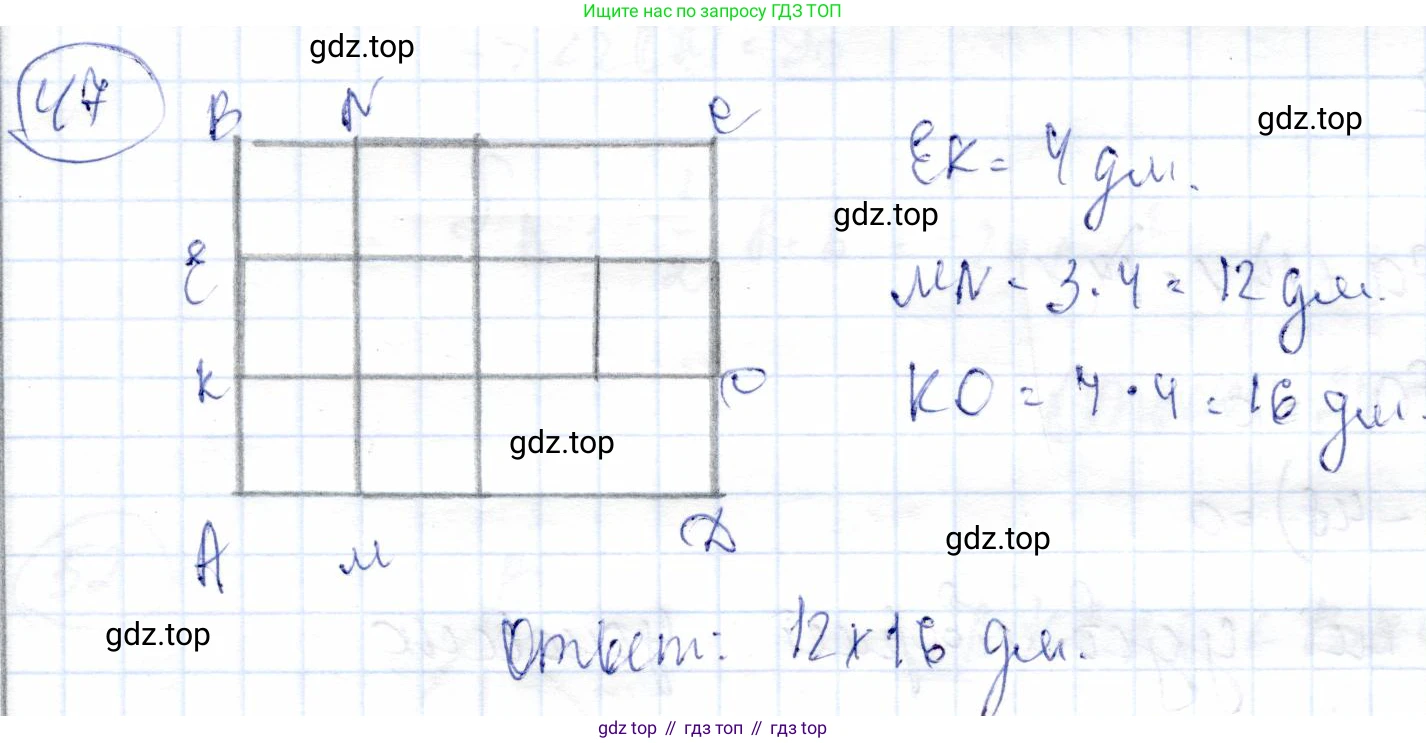 Ищите нас по запросу ГДЗ ТОП
gdz.top
47
B N C
gdz.top
EK = 4 дм.
gdz.top
E
MN = 3 · 4 = 12 дм.
K O
KO = 4 · 4 = 16 дм.
gdz.top
A M D
gdz.top
gdz.top
Ответ: 12 x 16 дм.
gdz.top // гдз топ // гдз top